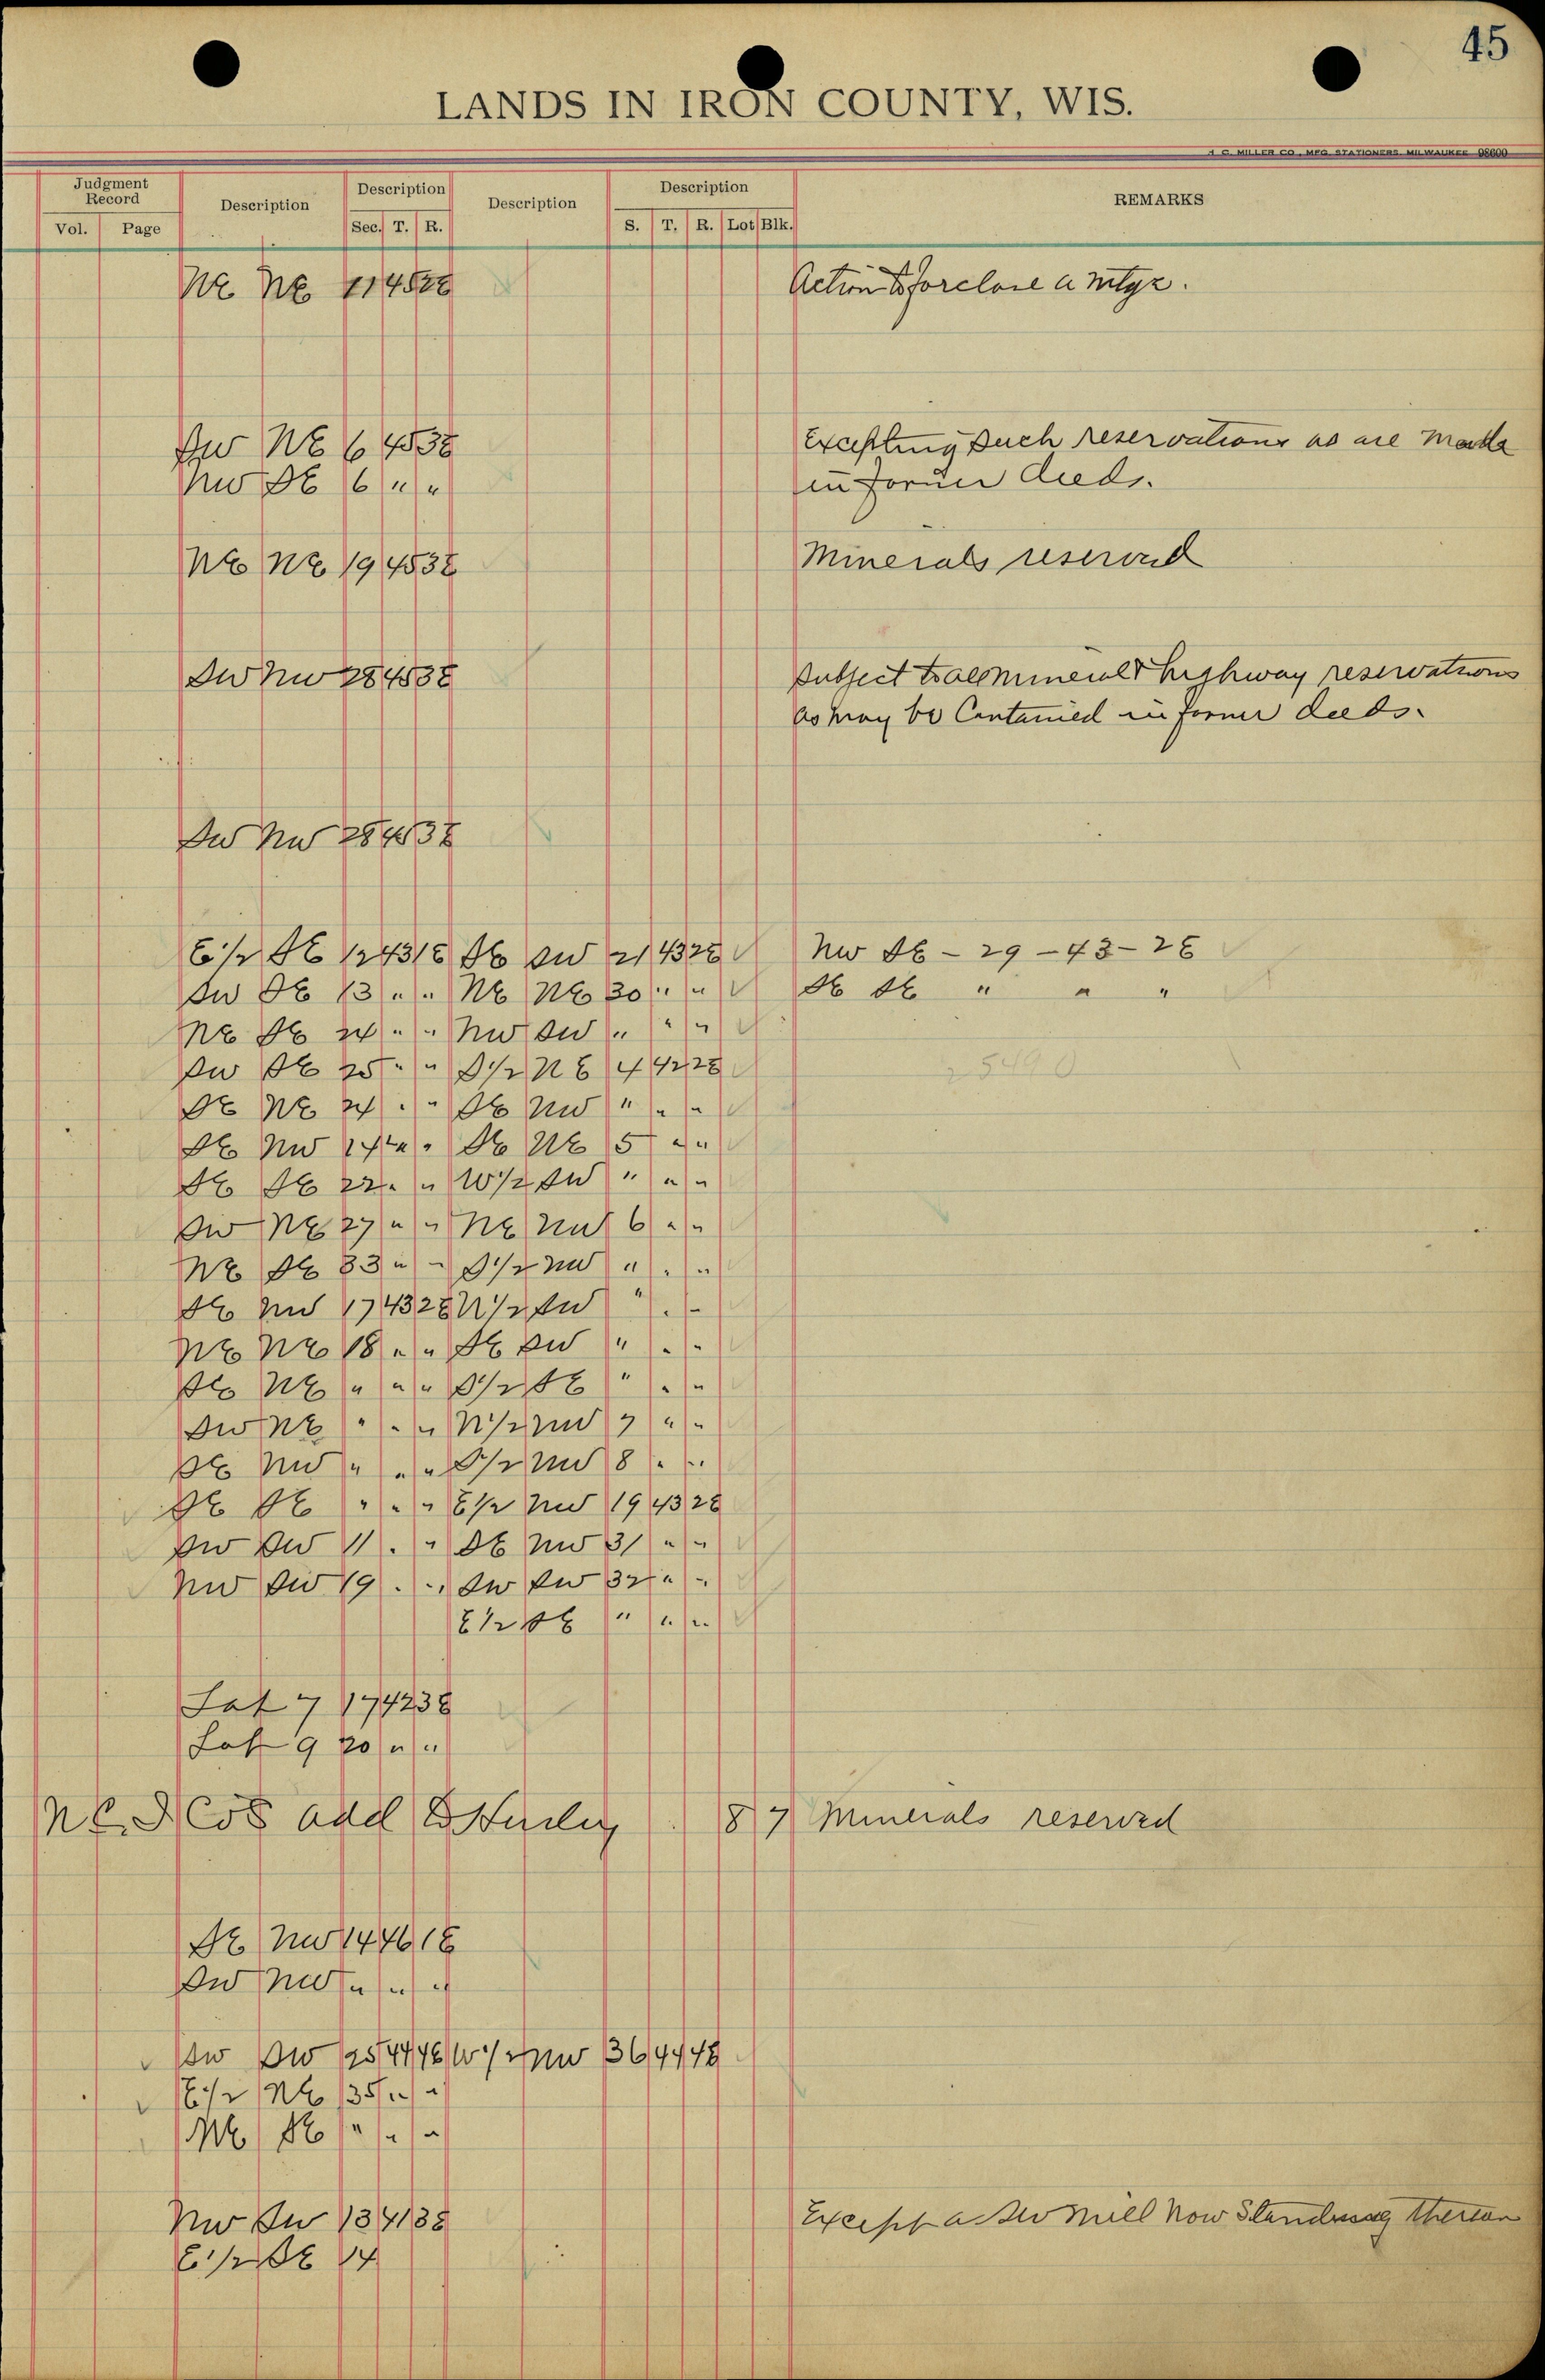 45
LANDS IN IRON COUNTY, WIS.
H. C. MILLER CO., MFG. STATIONERS MILWAUKEE 98600
Judgment Record Description Description Description Description REMARKS
Vol. Page Sec. T. R. S. T. R. Lot Blk.
NE NE 11 45 2E Action to foreclose a mtge.
SW NE 6 45 3E Excepting such reservations as are made
NW SE 6 " " in former deeds.
NE NE 19 45 3E Minerals reserved
SW NW 28 45 3E Subject to all mineral & highway reservations
as may be Contained in former deeds.
SW NW 28 45 3E
E 1/2 SE 12 43 1E SE SW 21 43 2E NW SE - 29 - 43 - 2E
SW SE 13 " " NE NE 30 " " SE SE " " "
NE SE 24 " " NW SW " " "
SW SE 25 " " S 1/2 NE 4 42 2E
SE NE 24 " " SE NW " " "
SE NW " " SE NE 5 " "
SE SE 22 " " W 1/2 SW " " "
SW NE 27 " " NE NW 6 " "
NE SE 33 " " S 1/2 NW " " "
SE NW 17 43 2E N 1/2 SW " " "
NE NE 18 " " SE SW " " "
SE NE " " " S 1/2 SE " " "
SW NE " " " N 1/2 NW 7 " "
SE NW " " " S 1/2 NW 8 " "
SE SE " " " E 1/2 NW 19 43 2E
SW SW 11 " " SE NW 31 " "
NW SW 19 " " SW SW 32 " "
E 1/2 SE " " "
Lot 7 17 42 3E
Lot 9 20 " "
add to Hurley 8 7 Minerals reserved
SE NW 14 46 1E
SW NW " " "
SW SW 25 44 4E W 1/2 NW 36 44 4E
E 1/2 NE 35 " "
NE SE " " "
NW SW 13 41 3E Except a Saw Mill now Standing thereon
E 1/2 SE 14